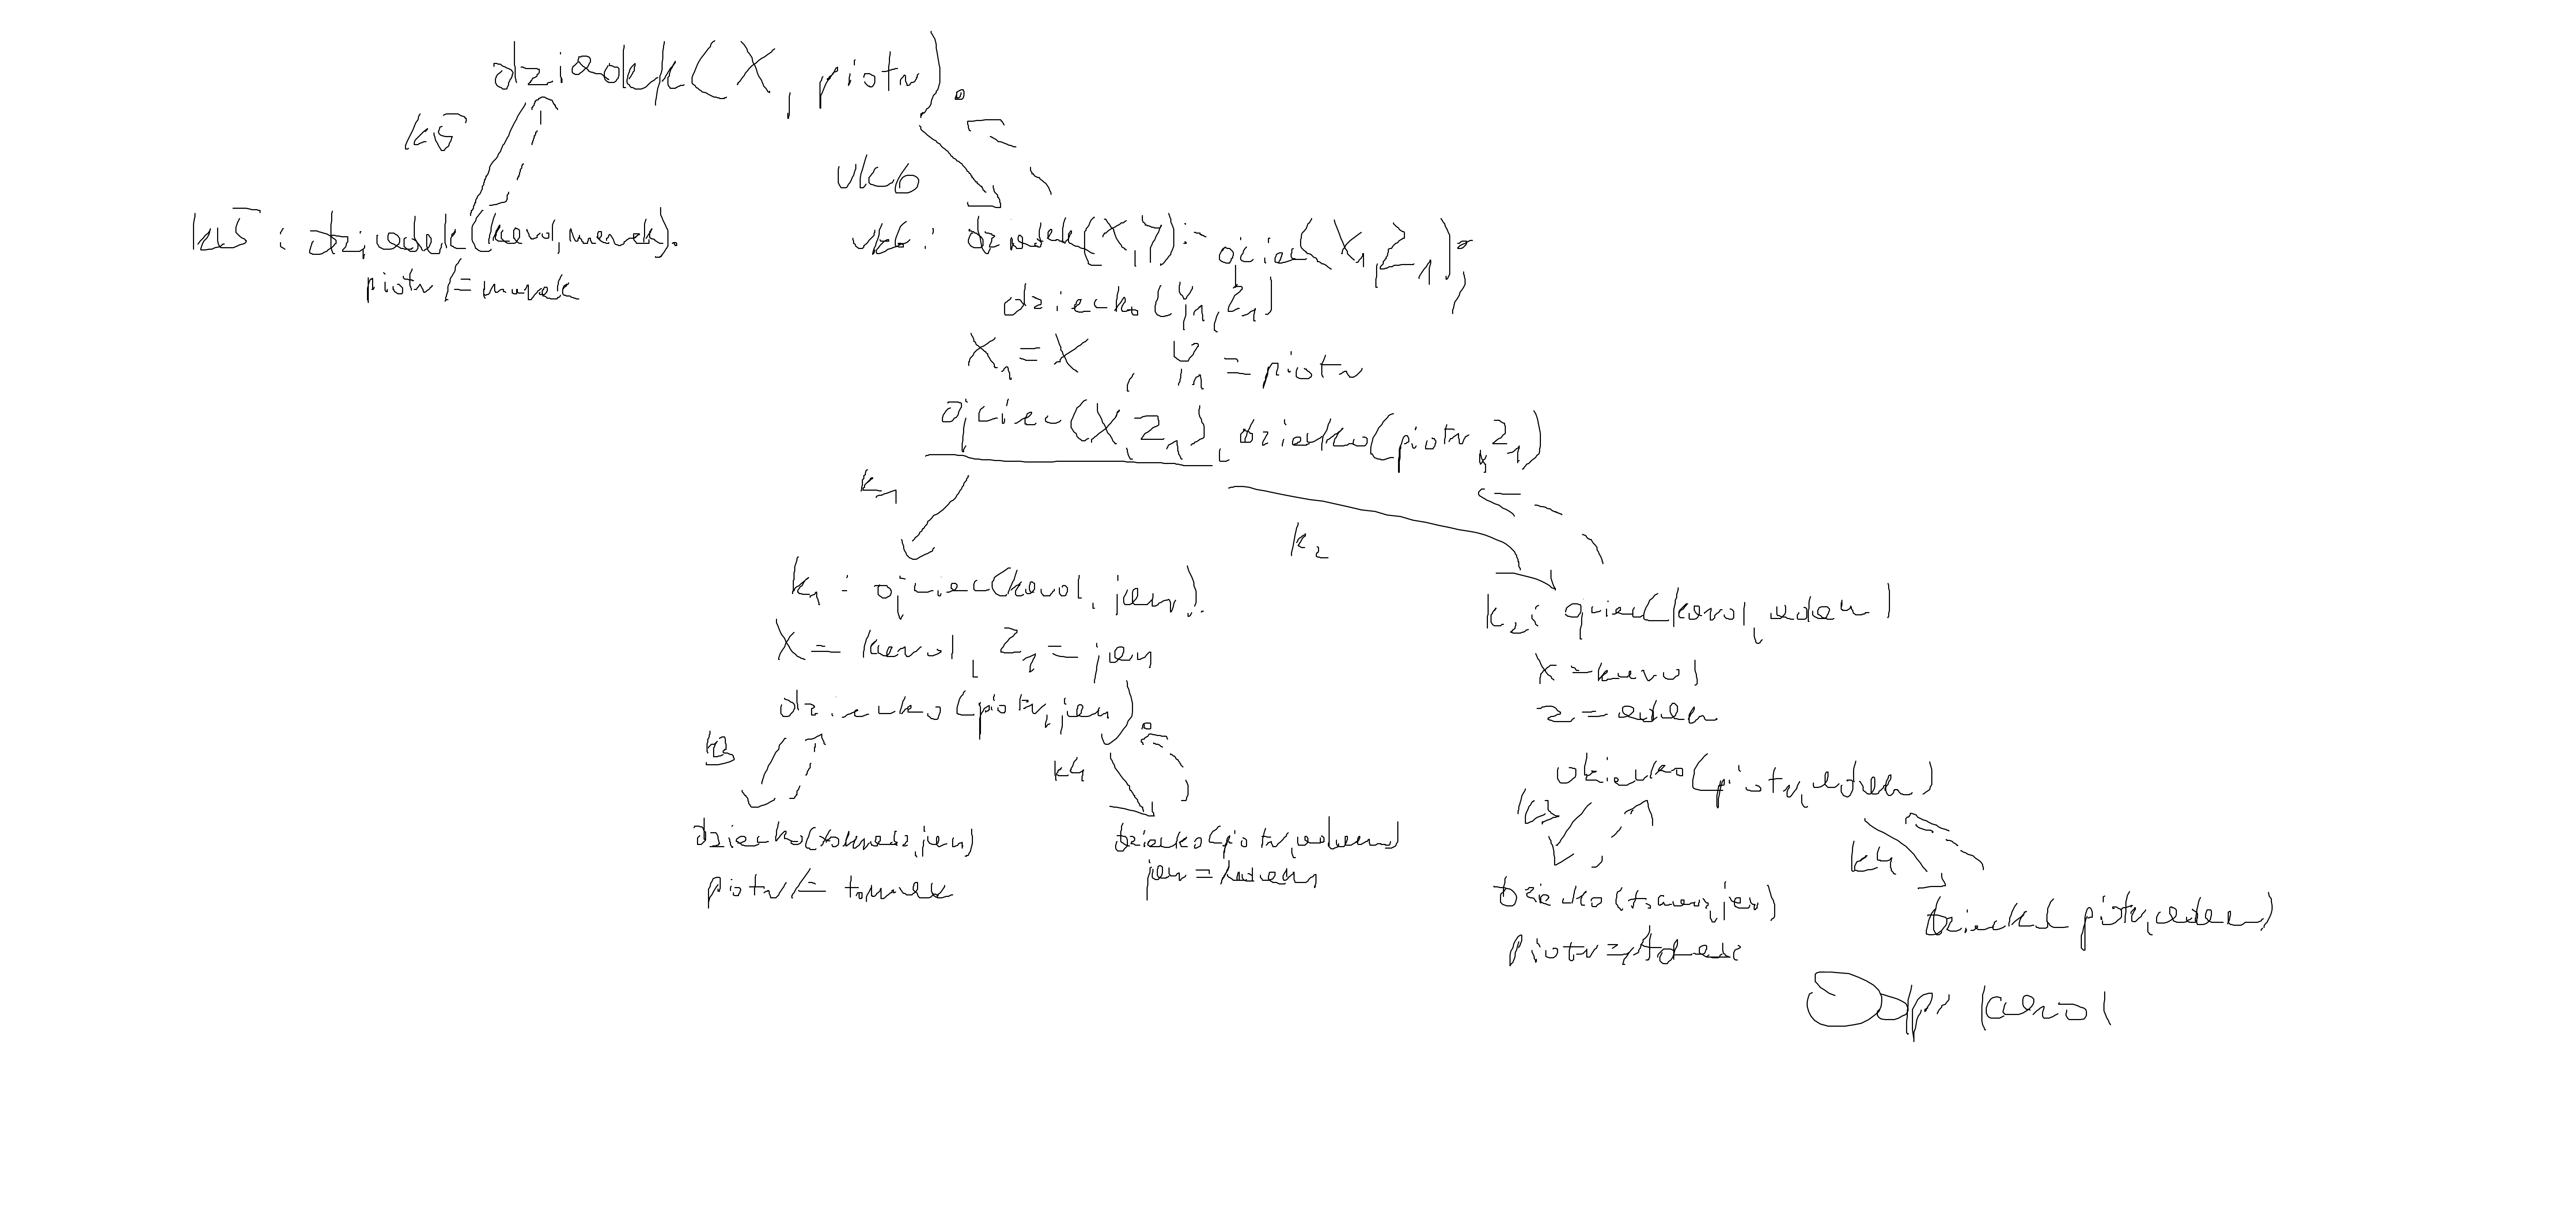 dziadek(X, piotr).
k5
vk6
k5 : dziadek(karol, marek).
piotr /= marek
vk6 : dziadek(X,Y):- ojciec(X1,Z1),
dziecko (Y1,Z1)
X1 = X , Y1 = piotr
ojciec(X,Z1), dziecko(piotr,Z1)
k1
k2
k1 : ojciec(karol, jan).
X = karol, Z1 = jan
dziecko (piotr, jan).
k3
k4
dziecko(tomasz, jan)
piotr /= tomek
dziecko(piotr, adam)
jan =/
k2: ojciec(karol, adam)
X = karol
z = adam
dziecko(piotr, adam)
k3
k4
dziecko (tomasz, jan)
piotr =/
dziecko( piotr, adam)
Odp: karol